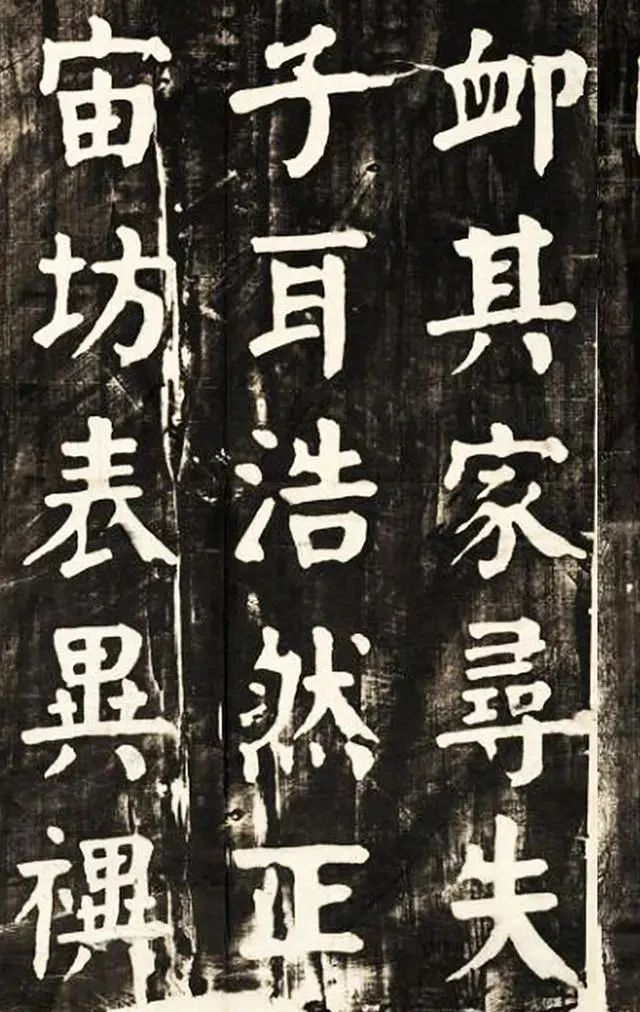 卹其家尋失
子耳浩然正
宙坊表異禩